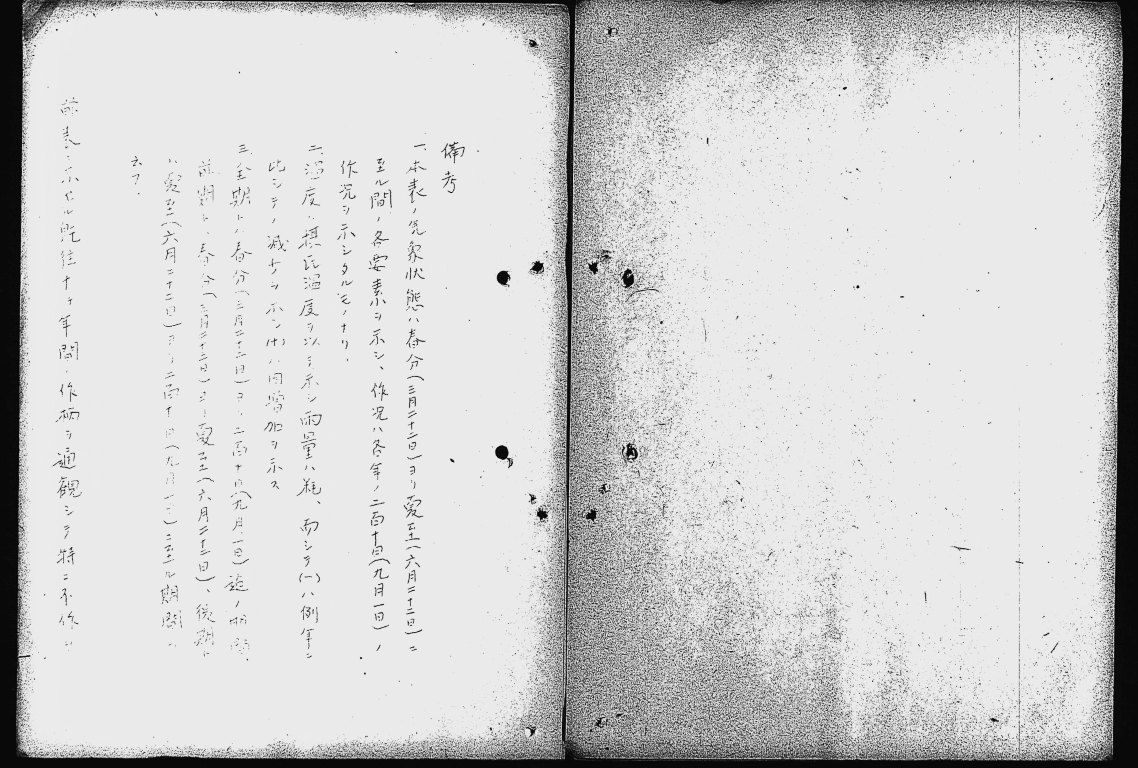 備考
一、本表ノ気象状態ハ春分(三月二十二日)ヨリ夏至(六月二十二日)ニ
至ル間ノ各要素ヲ示シ、作況ハ各年ノ二百十日(九月一日)ノ
作況ヲ示シタルモノナリ、
二、温度ハ摂氏温度ヲ以テ示シ雨量ハ粍、而シテ(一)ハ例年ニ
比シテノ減少ヲ示シ(十)ハ同増加ヲ示ス
三、全期トハ春分(三月二十二日)ヨリ二百十日(九月一日)迄ノ期間
前期トハ春分(三月二十二日)ヨリ夏至(六月二十二日)、後期ト
ハ夏至(六月二十二日)ヨリ二百十日(九月一日)ニ至ル期間ヲ
云フ、
前表ニ示セル既往ナヶ年間ノ作柄ヲ通観シテ特ニ不作ハ